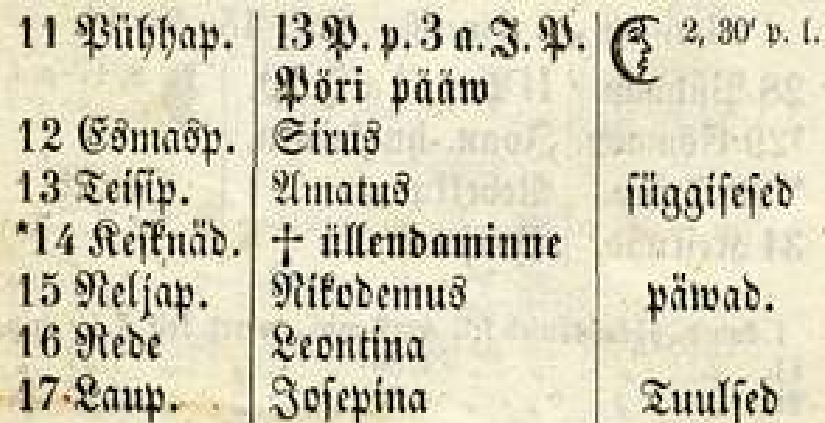 11 Pühhap. 13 P. p. 3 a. J. P. 2, 30' p. l.
Pöri pääw
12 Esmasp. Sirus
13 Teisip. Amatus süggisesed
*14 Kesknäd. † üllendaminne
15 Neljap. Nikodemus päwad.
16 Rede Leontina
17 Laup. Josepina Tuulsed